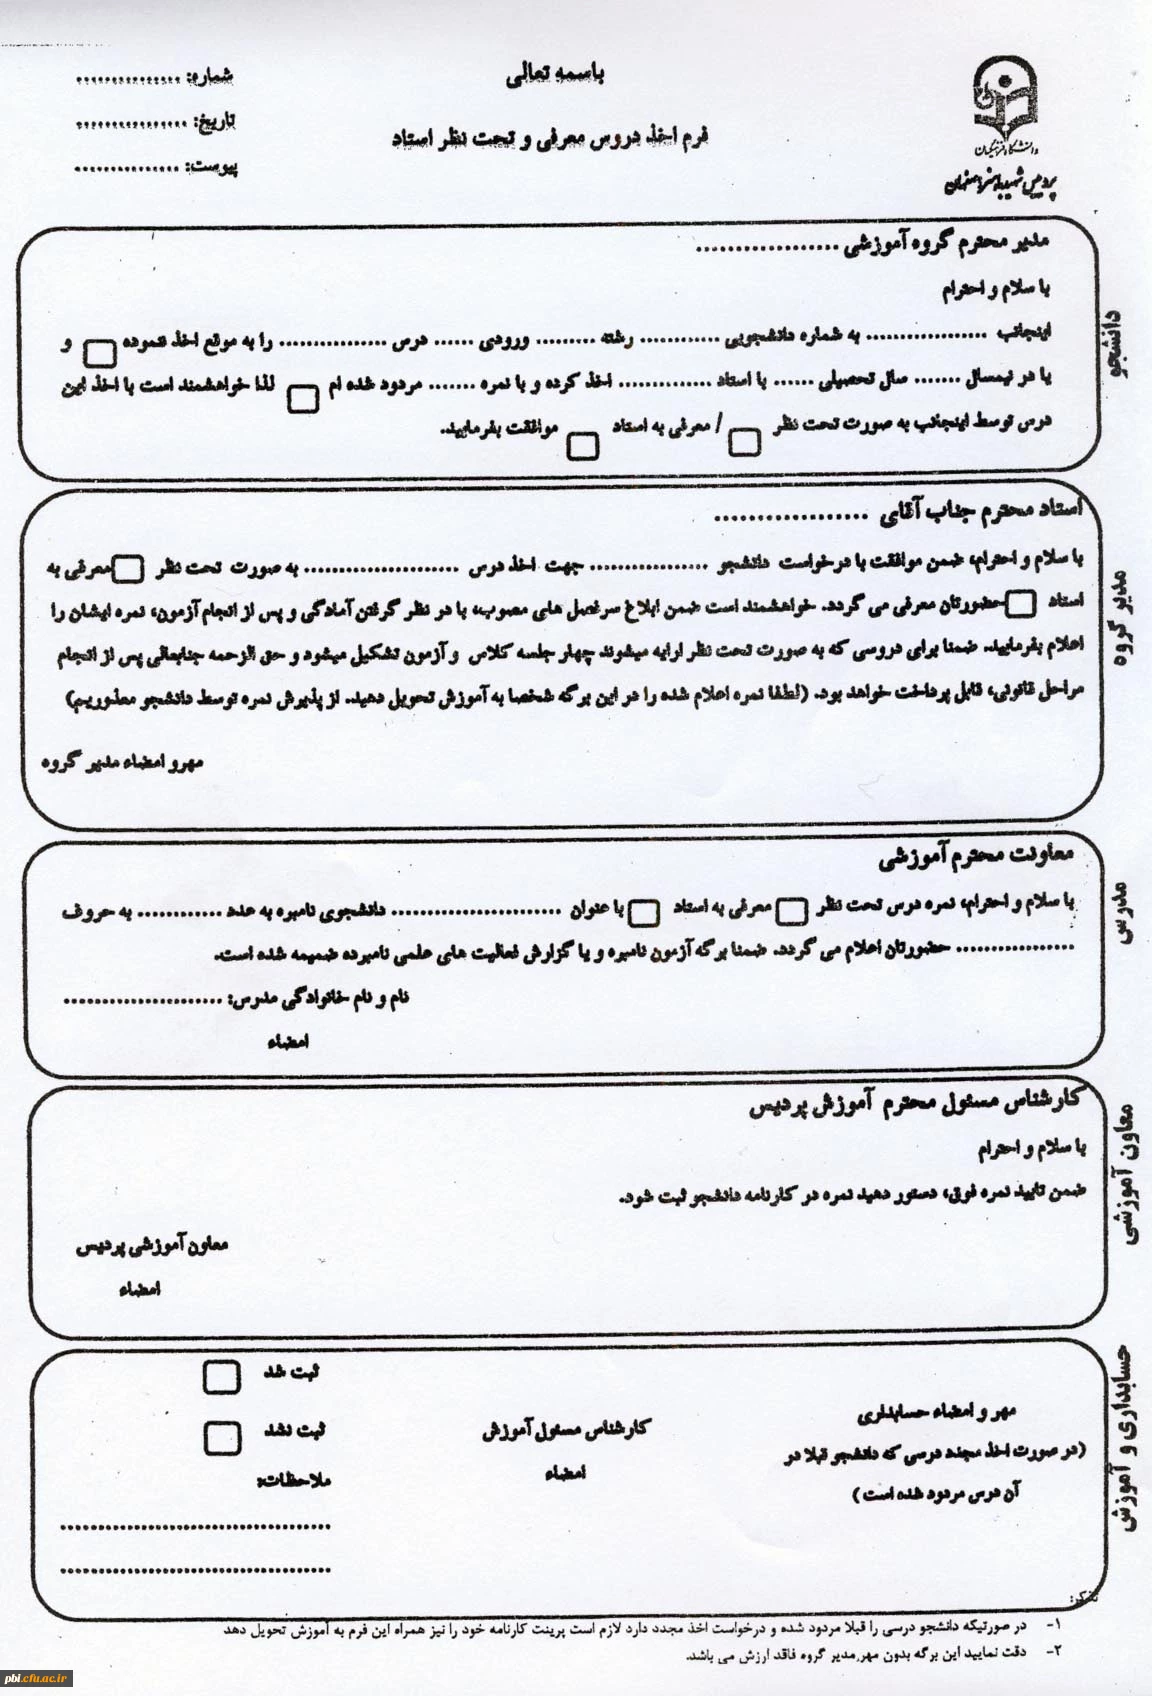 باسمه تعالی
فرم اخذ دروس معرفی و تحت نظر استاد
شماره: ................
تاریخ: ................
پیوست: ................
دانشگاه فرهنگیان
پردیس شهید باهنر اصفهان
دانشجو
مدیر محترم گروه آموزشی ..................
با سلام و احترام
اینجانب .................. به شماره دانشجویی ............ رشته ......... ورودی ...... درس ................ را به موقع اخذ ننموده □ و
یا در نیمسال ....... سال تحصیلی ...... با استاد .............. اخذ کرده و با نمره ....... مردود شده ام □ لذا خواهشمند است با اخذ این
درس توسط اینجانب به صورت تحت نظر □ / معرفی به استاد □ موافقت بفرمایید.
مدیر گروه
استاد محترم جناب آقای ..................
با سلام و احترام، ضمن موافقت با درخواست دانشجو .................. جهت اخذ درس ...................... به صورت تحت نظر □ معرفی به
استاد □ حضورتان معرفی می گردد. خواهشمند است ضمن ابلاغ سرفصل های مصوب، با در نظر گرفتن آمادگی و پس از انجام آزمون، نمره ایشان را
اعلام بفرمایید. ضمنا برای دروسی که به صورت تحت نظر ارایه میشوند چهار جلسه کلاس و آزمون تشکیل میشود و حق الزحمه جنابعالی پس از انجام
مراحل قانونی، قابل پرداخت خواهد بود. (لطفا نمره اعلام شده را در این برگه شخصا به آموزش تحویل دهید. از پذیرش نمره توسط دانشجو معذوریم)
مهرو امضاء مدیر گروه
مدرس
معاونت محترم آموزشی
با سلام و احترام، نمره درس تحت نظر □ معرفی به استاد □ با عنوان ........................ دانشجوی نامبره به عدد ............ به حروف
.................. حضورتان اعلام می گردد. ضمنا برگه آزمون نامبره و یا گزارش فعالیت های علمی نامبرده ضمیمه شده است.
نام و نام خانوادگی مدرس: ........................
امضاء
معاون آموزشی
کارشناس مسئول محترم آموزش پردیس
با سلام و احترام
ضمن تایید نمره فوق، دستور دهید نمره در کارنامه دانشجو ثبت شود.
معاون آموزشی پردیس
امضاء
حسابداری و آموزش
مهر و امضاء حسابداری
(در صورت اخذ مجدد درسی که دانشجو قبلا در
آن درس مردود شده است)
کارشناس مسئول آموزش
امضاء
ثبت شد □
ثبت نشد □
ملاحظات:
........................................
........................................
تذکر:
۱- در صورتیکه دانشجو درسی را قبلا مردود شده و درخواست اخذ مجدد دارد لازم است پرینت کارنامه خود را نیز همراه این فرم به آموزش تحویل دهد
۲- دقت نمایید این برگه بدون مهر مدیر گروه فاقد ارزش می باشد.
pbi.cfu.ac.ir